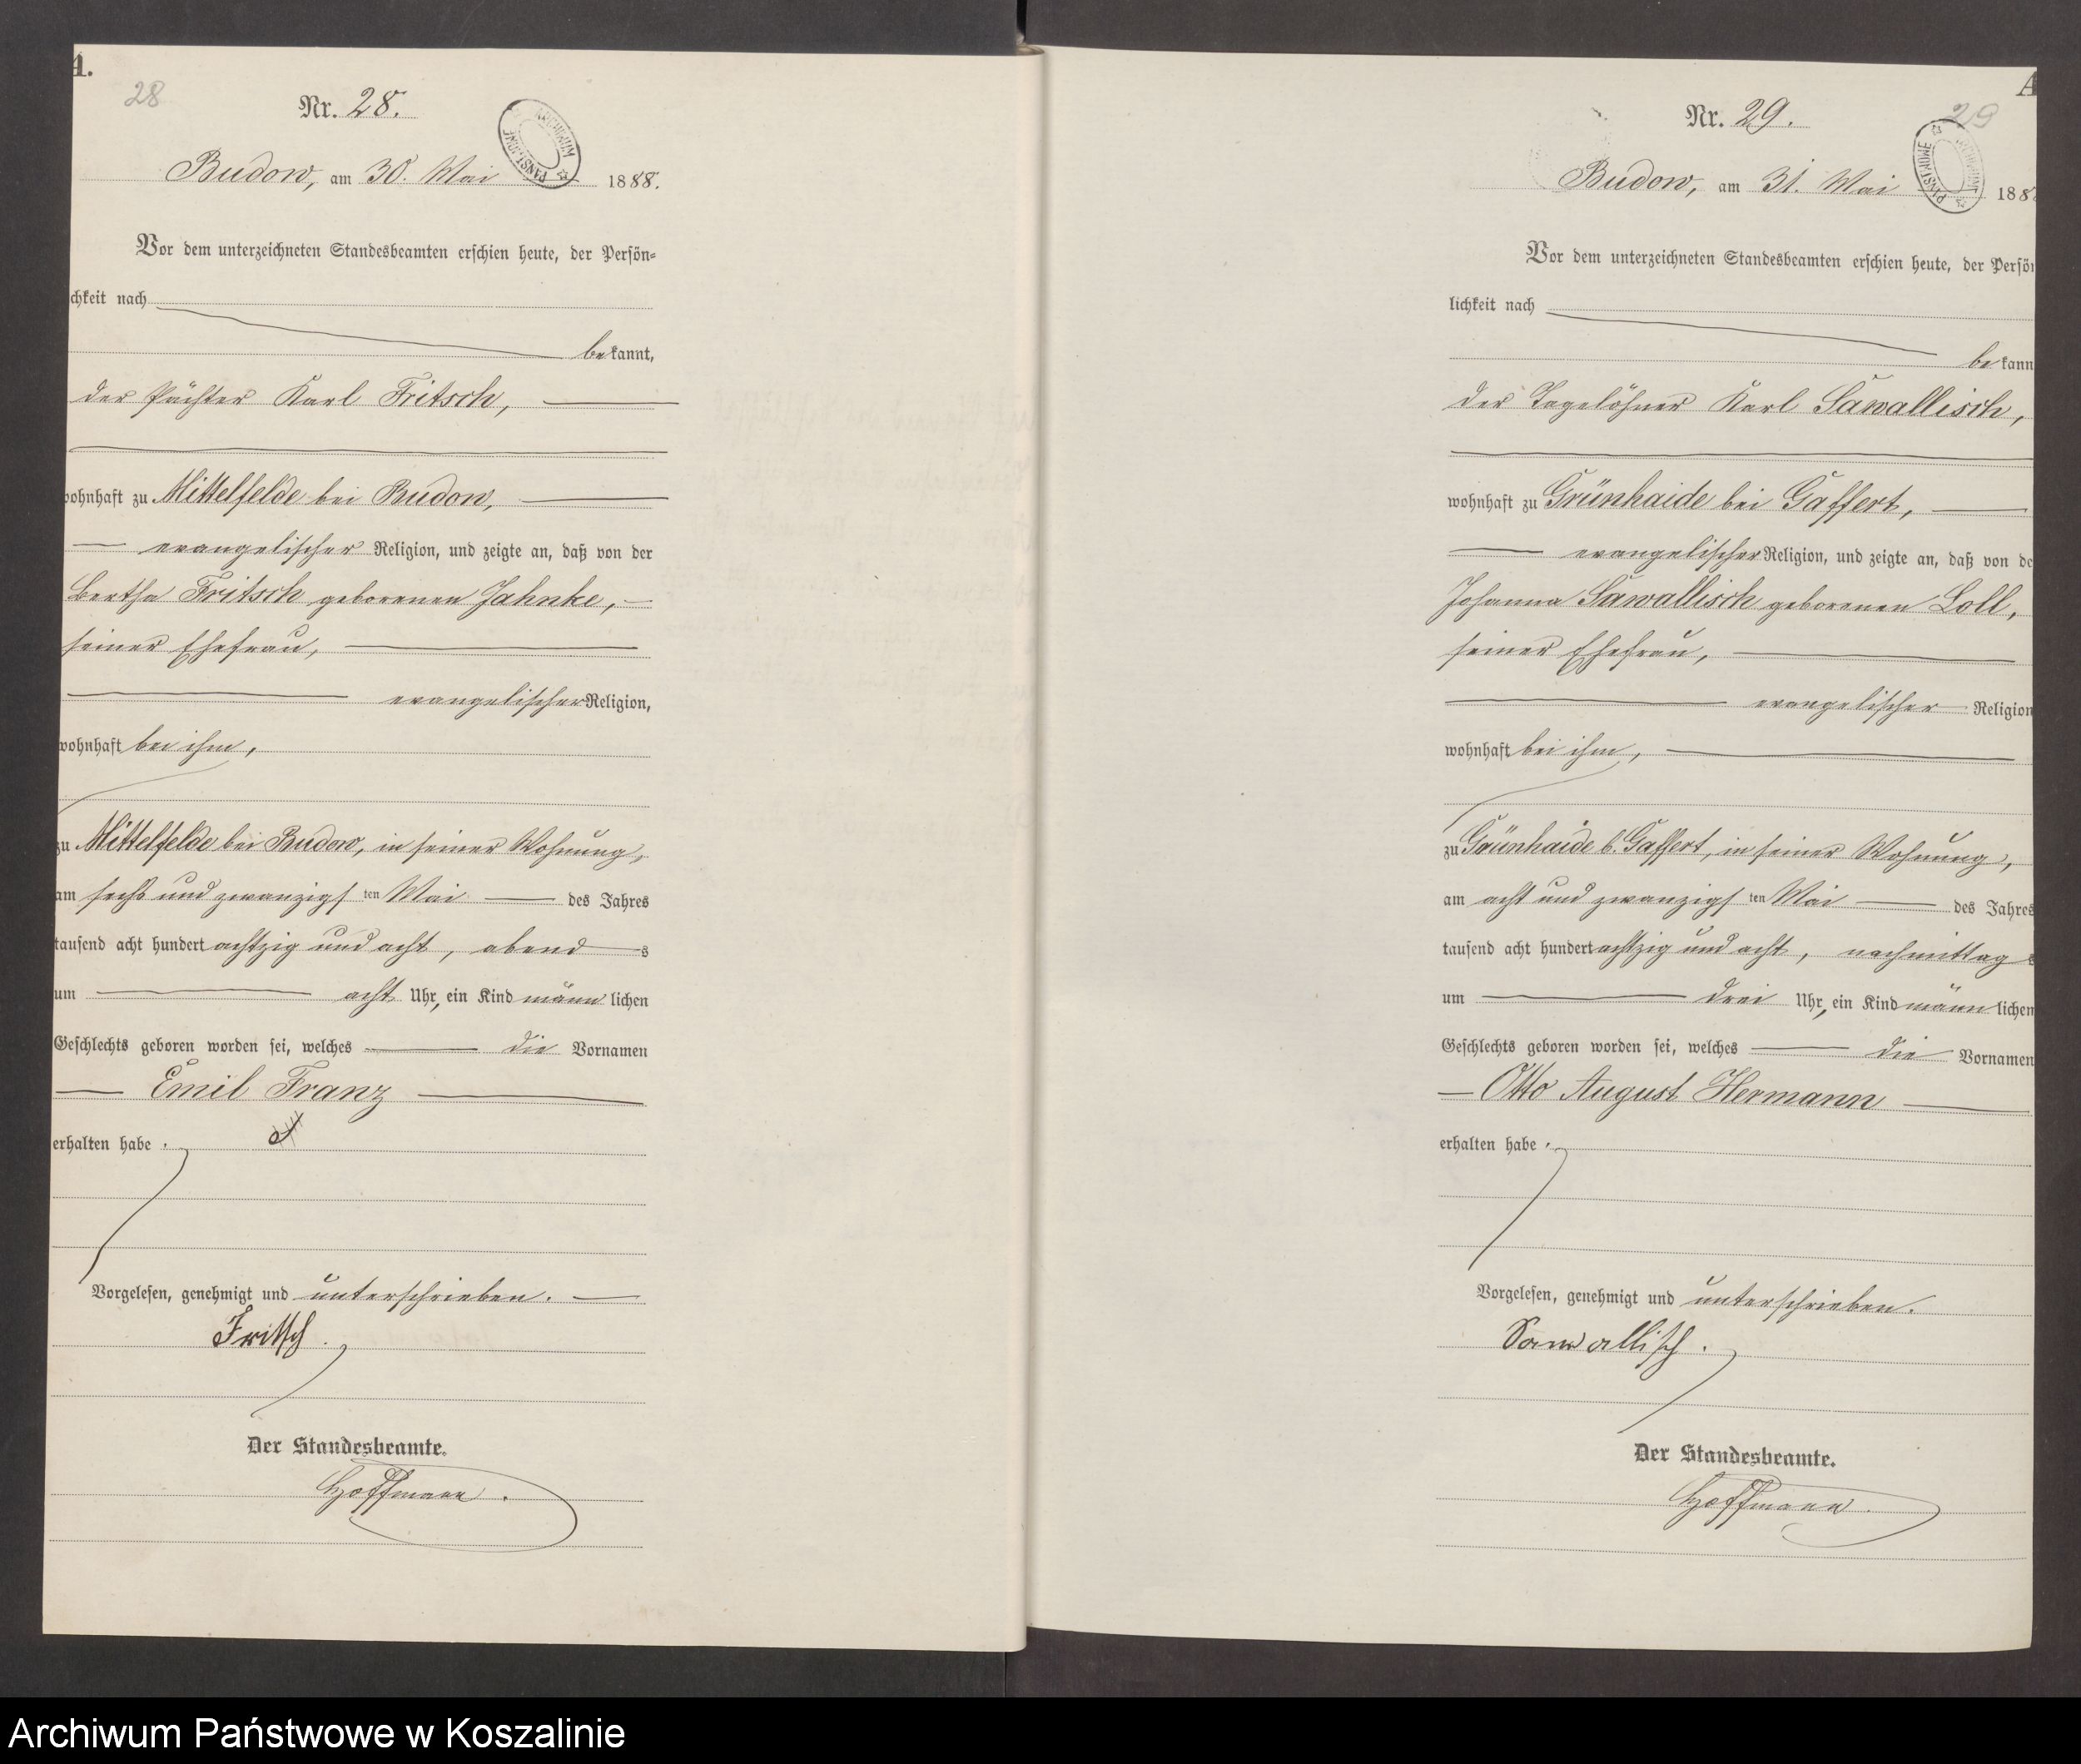 A.
28
Nr. 28.
Budow, am 30. Mai 1888.
Vor dem unterzeichneten Standesbeamten erschien heute, der Persön-
chkeit nach
bekannt,
der Pächter Karl Fritsch,
wohnhaft zu Mittelfelde bei Budow,
evangelischer Religion, und zeigte an, daß von der
Bertha Fritsch geborenen Jahnke,
seiner Ehefrau,
evangelischer Religion,
wohnhaft bei ihm,
zu Mittelfelde bei Budow, in seiner Wohnung,
am sechs und zwanzigsten Mai des Jahres
tausend acht hundert achtzig und acht, abends
um acht Uhr, ein Kind männlichen
Geschlechts geboren worden sei, welches die Vornamen
Emil Franz
erhalten habe.
Vorgelesen, genehmigt und unterschrieben.
Fritsch.
Der Standesbeamte.
Hoffmann.
ARCHIWUM PAŃSTWOWE
A
29
Nr. 29.
Budow, am 31. Mai 188
Vor dem unterzeichneten Standesbeamten erschien heute, der Persö
lichkeit nach
bekann
der Tagelöhner Karl Sawallisch,
wohnhaft zu Grünhaide bei Gaffert,
evangelischer Religion, und zeigte an, daß von de
Johanna Sawallisch geborenen Loll,
seiner Ehefrau,
evangelischer Religion
wohnhaft bei ihm,
zu Grünhaide b. Gaffert, in seiner Wohnung,
am acht und zwanzigsten Mai des Jahres
tausend acht hundert achtzig und acht, nachmittags
um drei Uhr, ein Kind männlichen
Geschlechts geboren worden sei, welches die Vornamen
Otto August Hermann
erhalten habe.
Vorgelesen, genehmigt und unterschrieben.
Sawallisch.
Der Standesbeamte.
Hoffmann.
ARCHIWUM PAŃSTWOWE
Archiwum Państwowe w Koszalinie